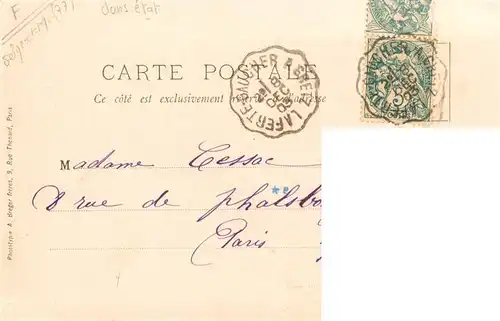 F
(77)
dans état
CARTE POSTALE
Ce côté est exclusivement réservé à l'adresse
LAFERTE-GAUCHER A
Madame Cessac
8 rue de phalsbo
Paris
Phototypie A. Breger Frères, 9, Rue Thénard, Paris